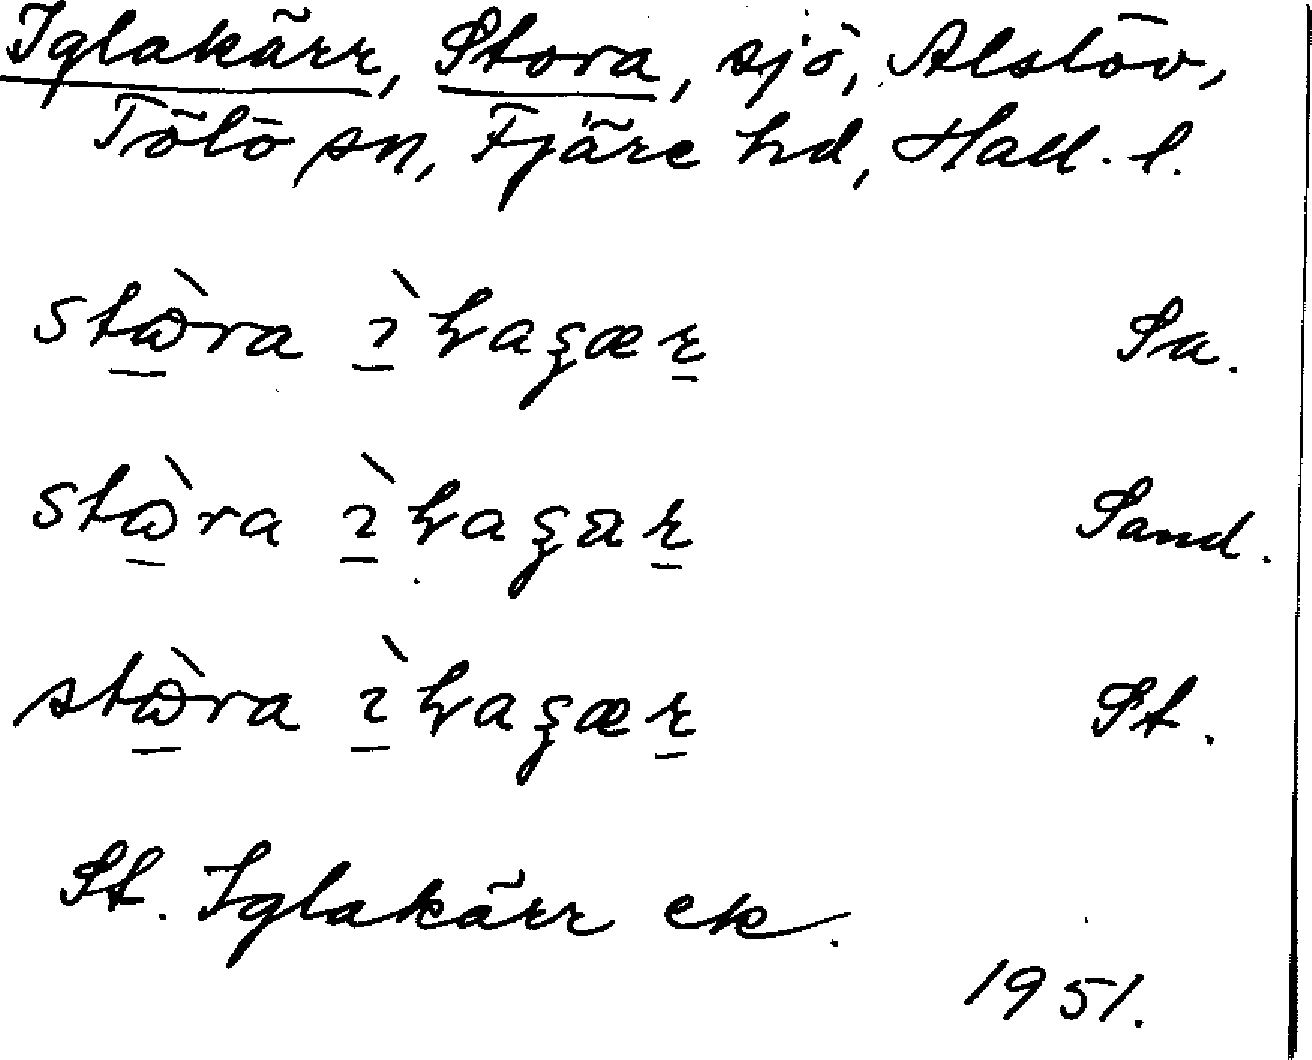 Iglakärr, Stora, sjö, Alslöv,
Tölö sn, Fjäre hd, Hall. l.
stὼ̲ra ı̲̀ɫagær̲ Sa.
stὼ̲ra ı̲̀ɫagar̲ Sand.
stὼ̲ra ı̲̀ɫagær̲ St.
St. Iglakärr ek.
1951.